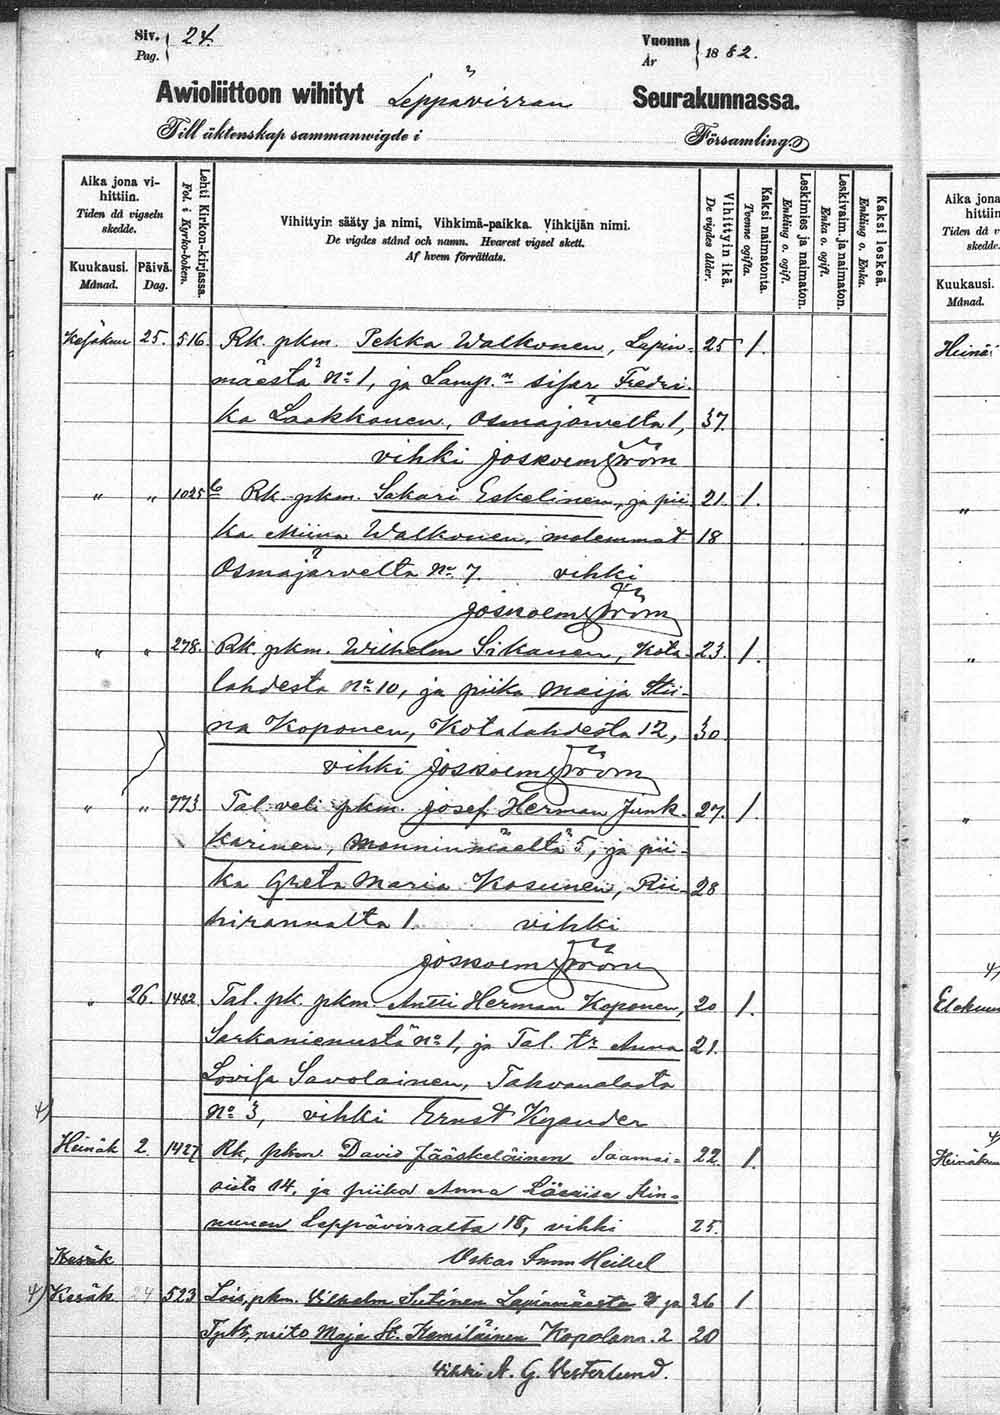 Siv. 24.
Pag.
Vuonna 1882.
År
Awioliittoon wihityt Leppävirran Seurakunnassa.
Till äktenskap sammanwigde i Församling
Aika jona vi-
hittiin.
Tiden då vigseln
skedde.
Kuukausi. Päivä.
Månad. Dag.
Lehti Kirkon-kirjassa.
Fol. i Kyrko-boken.
Vihittyin sääty ja nimi, Vihkimä-paikka. Vihkijän nimi.
De vigdes stånd och namn. Hvarest vigsel skett.
Af hvem förrättats.
Vihittyin ikä.
De vigdes ålder.
Kaksi naimatonta.
Tvenne ogifta.
Leskimies ja naimaton.
Enkling o. ogift.
Leskivaim. ja naimaton.
Enka o. ogift.
Kaksi leskeä.
Enkling o. Enka.
Kesäkuu 25. 516. Rk. pkm. Pekka Walkonen, Lepin- 25 1.
mäestä No 1, ja Lamp.n sisar Fredri-
ka Laakkonen, Osmajärveltä 1, 37.
vihki
" " 1025 b Rk. pkm. Sakari Eskelinen, ja pii- 21. 1.
ka Miina Walkonen, molemmat 18
Osmajärveltä No 7. vihki
" " 278. Rk. pkm. Wilhelm Sikanen, Kota- 23. 1.
lahdesta No 10, ja piika Maija Stii-
na Koponen, Kotalahdesta 12, 30.
vihki
" " 773 Tal. veli pkm. Josef Herman Junk- 27. 1.
karinen, Monninmäeltä 5, ja pii-
ka Greta Maria Kosunen, Rii- 28
hirannalta 1. vihki
" 26. 1482 Tal. pk. pkm. Antti Herman Koponen, 20 1.
Sarkaniemestä No 1, ja Tal. tr Anna 21.
Lovisa Savolainen, Tahvanalasta
No 3, vihki Ernst Kyander
4)
Heinäk 2. 1427 Rk. pkm. David Jääskeläinen Saamai- 22. 1.
sista 14, ja piika Anna Loviisa Kin-
nunen Leppävirralta 18, vihki 25.
Kesäk Oskar Imm Heikel
4) Kesäk 24 523 Lois. pkm. Vilhelm Sutinen Lapinmäestä ja 26 1
neito Maja St. Kemiläinen Kopolanm. 2 20
Vihki A. G. Vesterlund.
Aika jona
hittiin
Tiden då v
skedde.
Kuukausi.
Månad.
Heinä
"
"
"
4)
Elokuu
4)
Heinäkuu